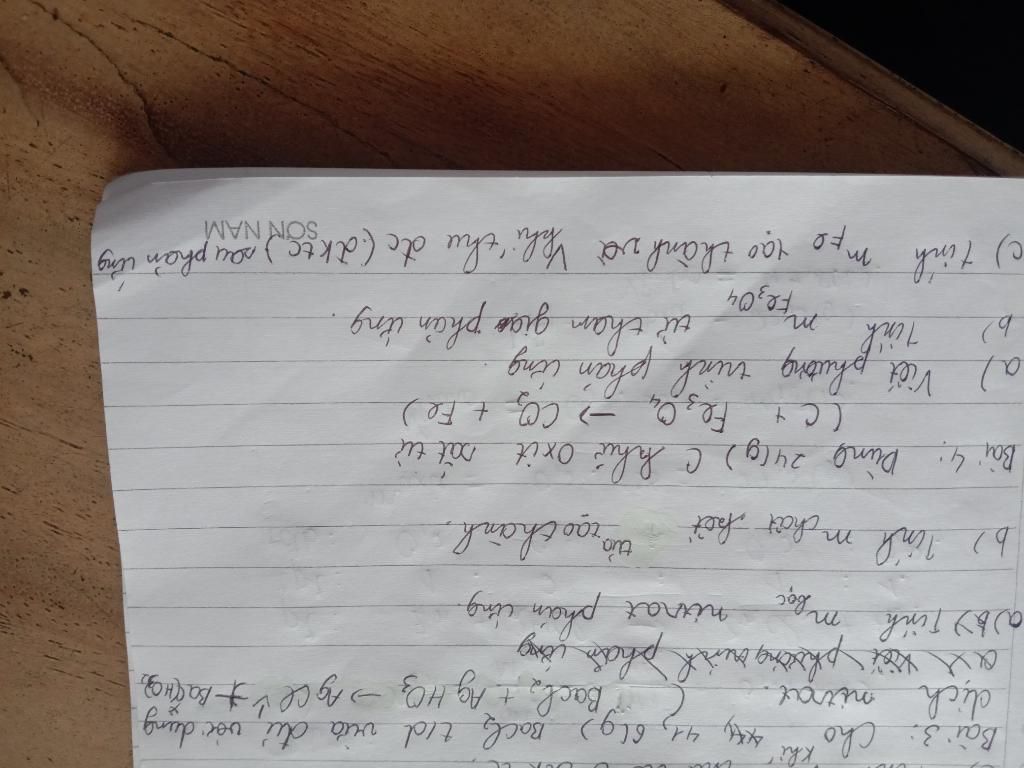 Bài 3: Cho 41,6(g) BaCl2 t/d vừa đủ với dung
dịch nitrat. (BaCl2 + AgHO3 → AgCl↓ + Ba(HO3)2
a) Viết phương trình phản ứng
a) b) Tính m bạc nitrat phản ứng.
b) Tính m chất kết tủa tạo thành.
Bài 4: Dùng 24(g) C khử oxit sắt từ
(C + Fe3O4 → CO2 + Fe)
a) Viết phương trình phản ứng.
b) Tính mFe3O4 từ tham gia phản ứng.
c) Tính mFe tạo thành và Vkhí thu đc (đktc) sau phản ứng
SƠN NAM